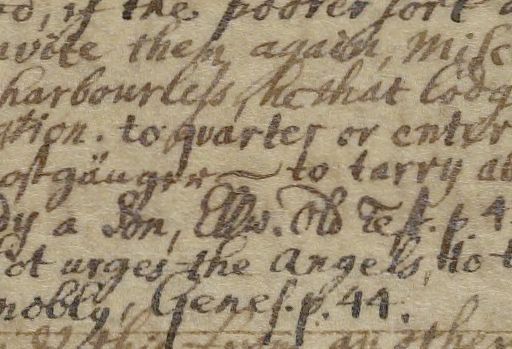 if the poorer sort
invite them again, Misc
harbourless, he that lodg
tion. to quarter or enter
ostgänger to tarry at
dy a Son, Ellw. Old Test. p. 4
ot urges the Angels, to t
nobly, Genes. p. 44.